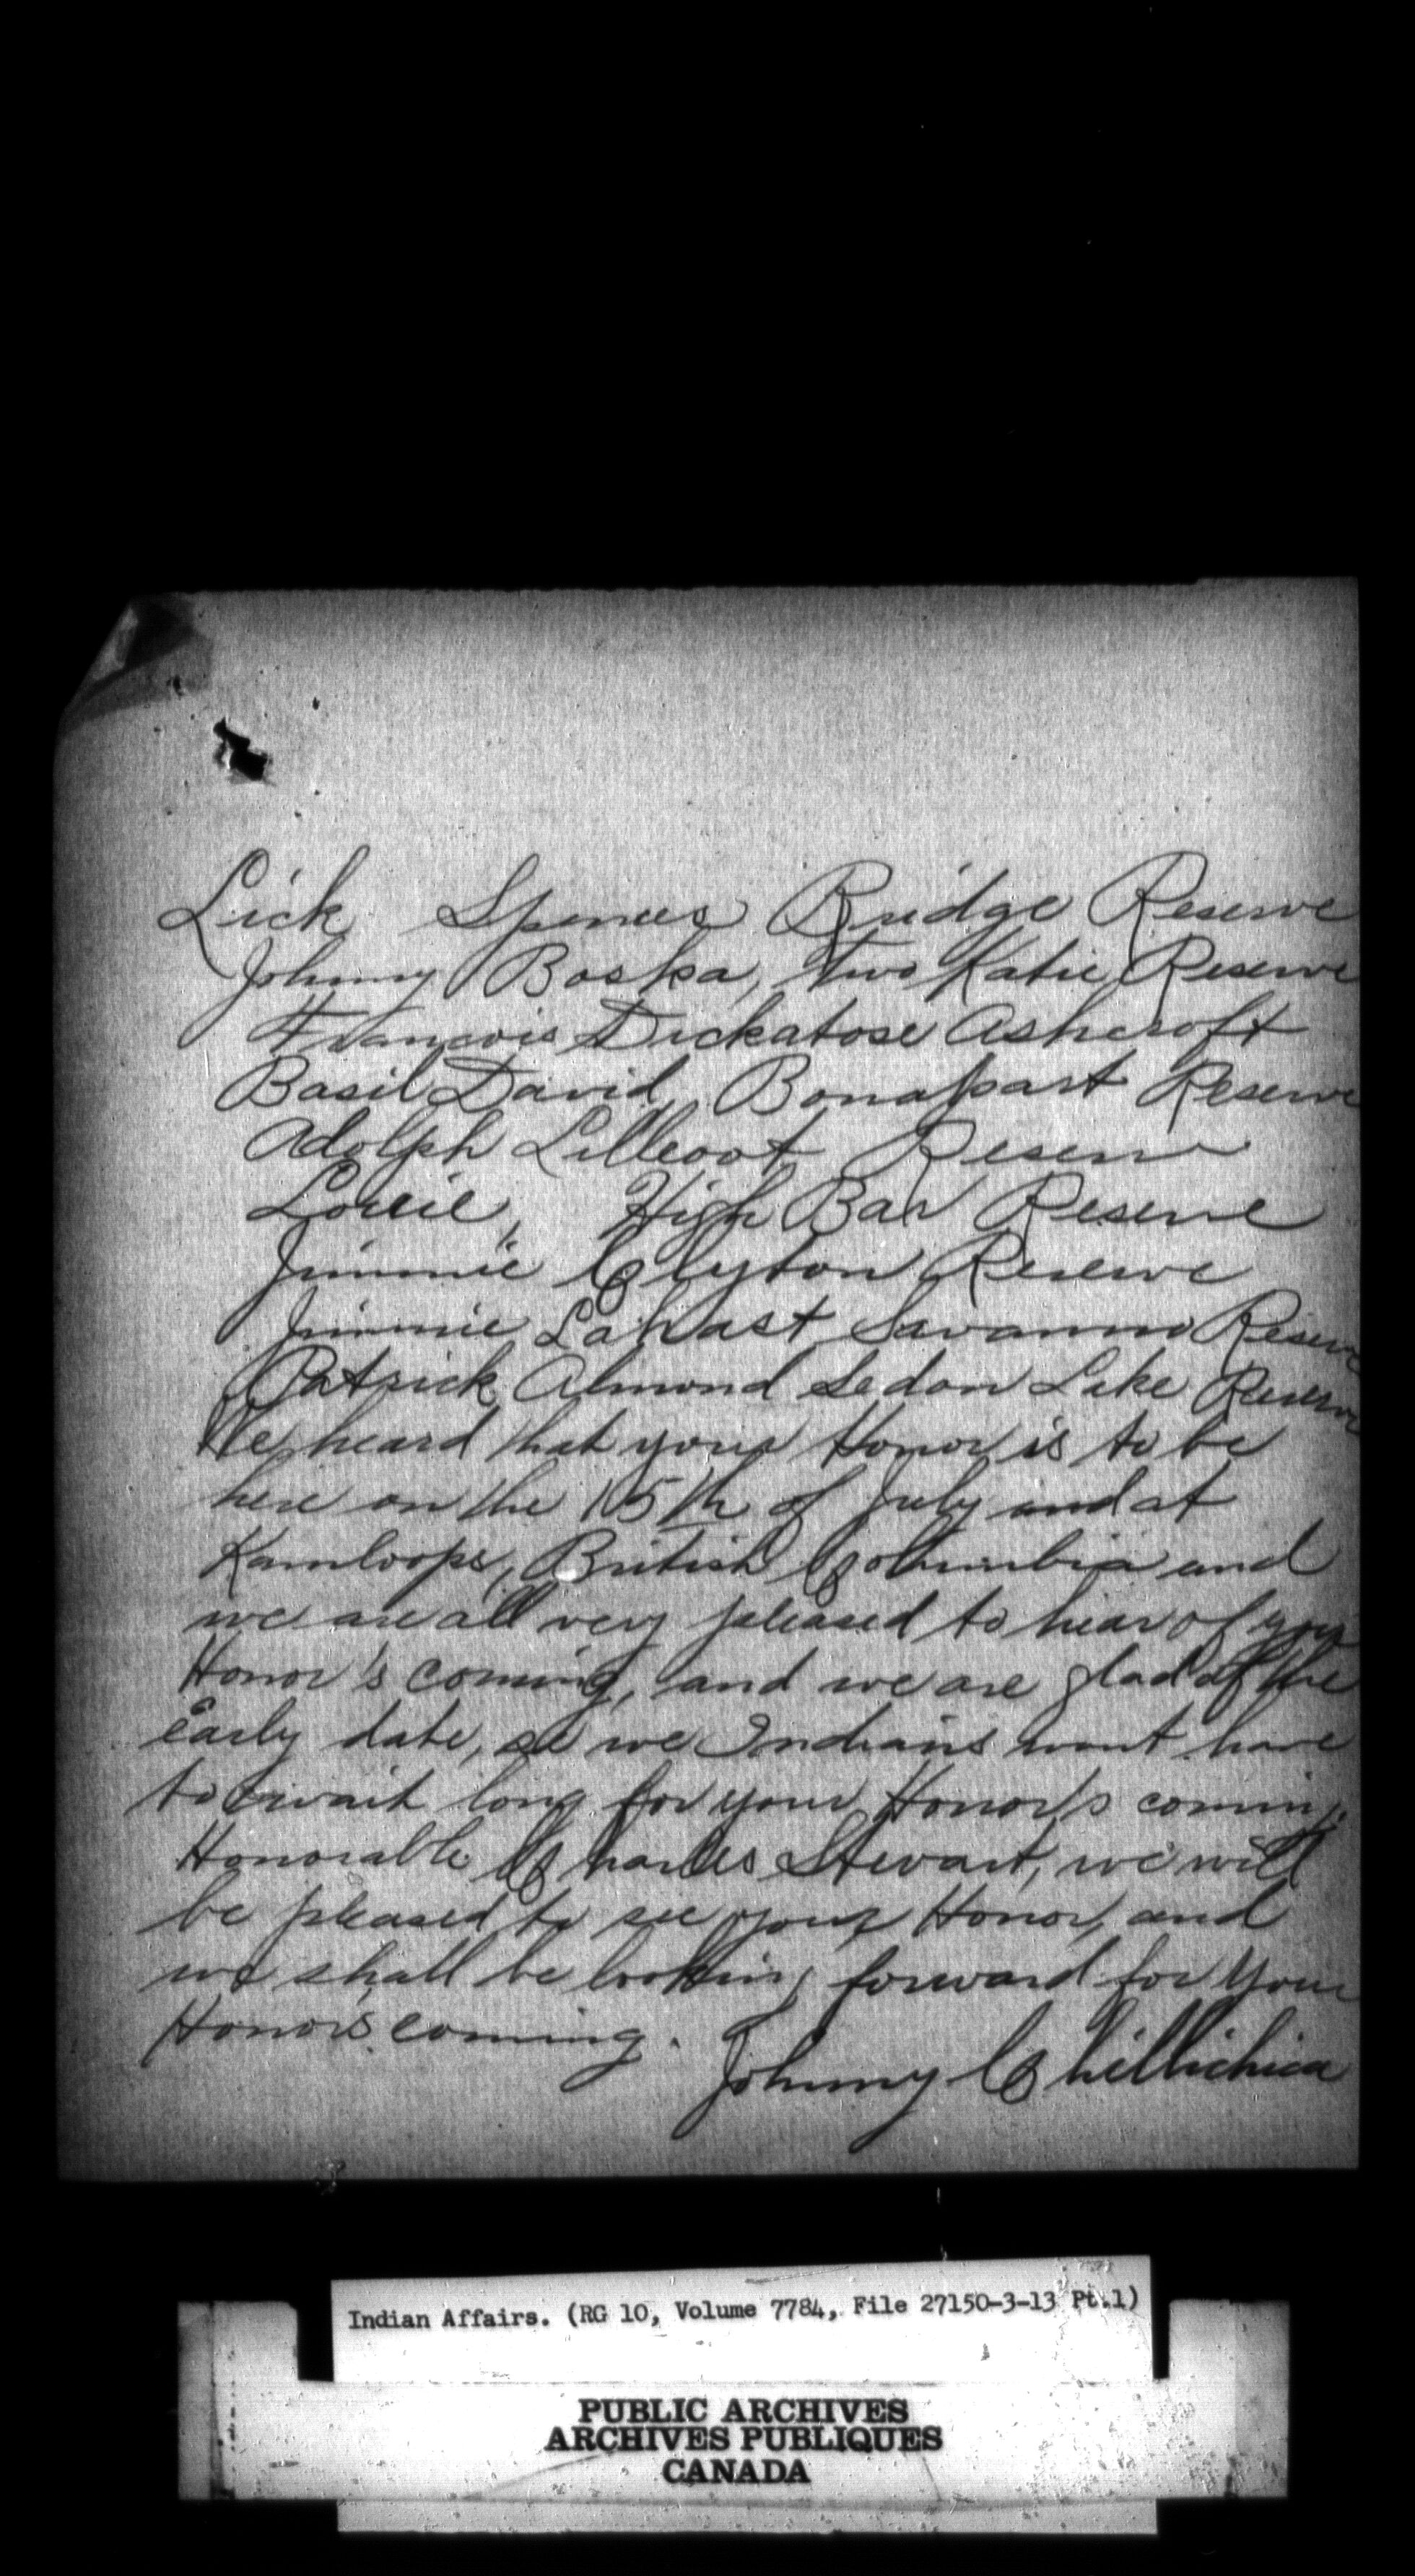 Lick Spences Bridge Reserve
Johnny Boska, Two Katie Reserve
Francois Dickatose Ashcroft
Basil David, Bonapart Reserve
Adolph Lilleoot Reserve
Louie, High Bar Reserve
Jimmie Clyton Reserve
Jimmie Lahast, Savanno Reserve
Patrick Almond Sedon Lake Reserve
We heard that your Honor is to be
here on the 15th of July and at
Kamloops, British Columbia and
we are all very pleased to hear of your
Honor's coming, and we are glad of the
early date, so we Indians wont have
to await long for your Honor's coming.
Honorable Charles Stewart, we will
be pleased to see your Honor, and
we shall be looking forward for Your
Honor's coming.
Johnny Chillihica
Indian Affairs. (RG 10, Volume 7784, File 27150-3-13 Pt.1)
PUBLIC ARCHIVES
ARCHIVES PUBLIQUES
CANADA